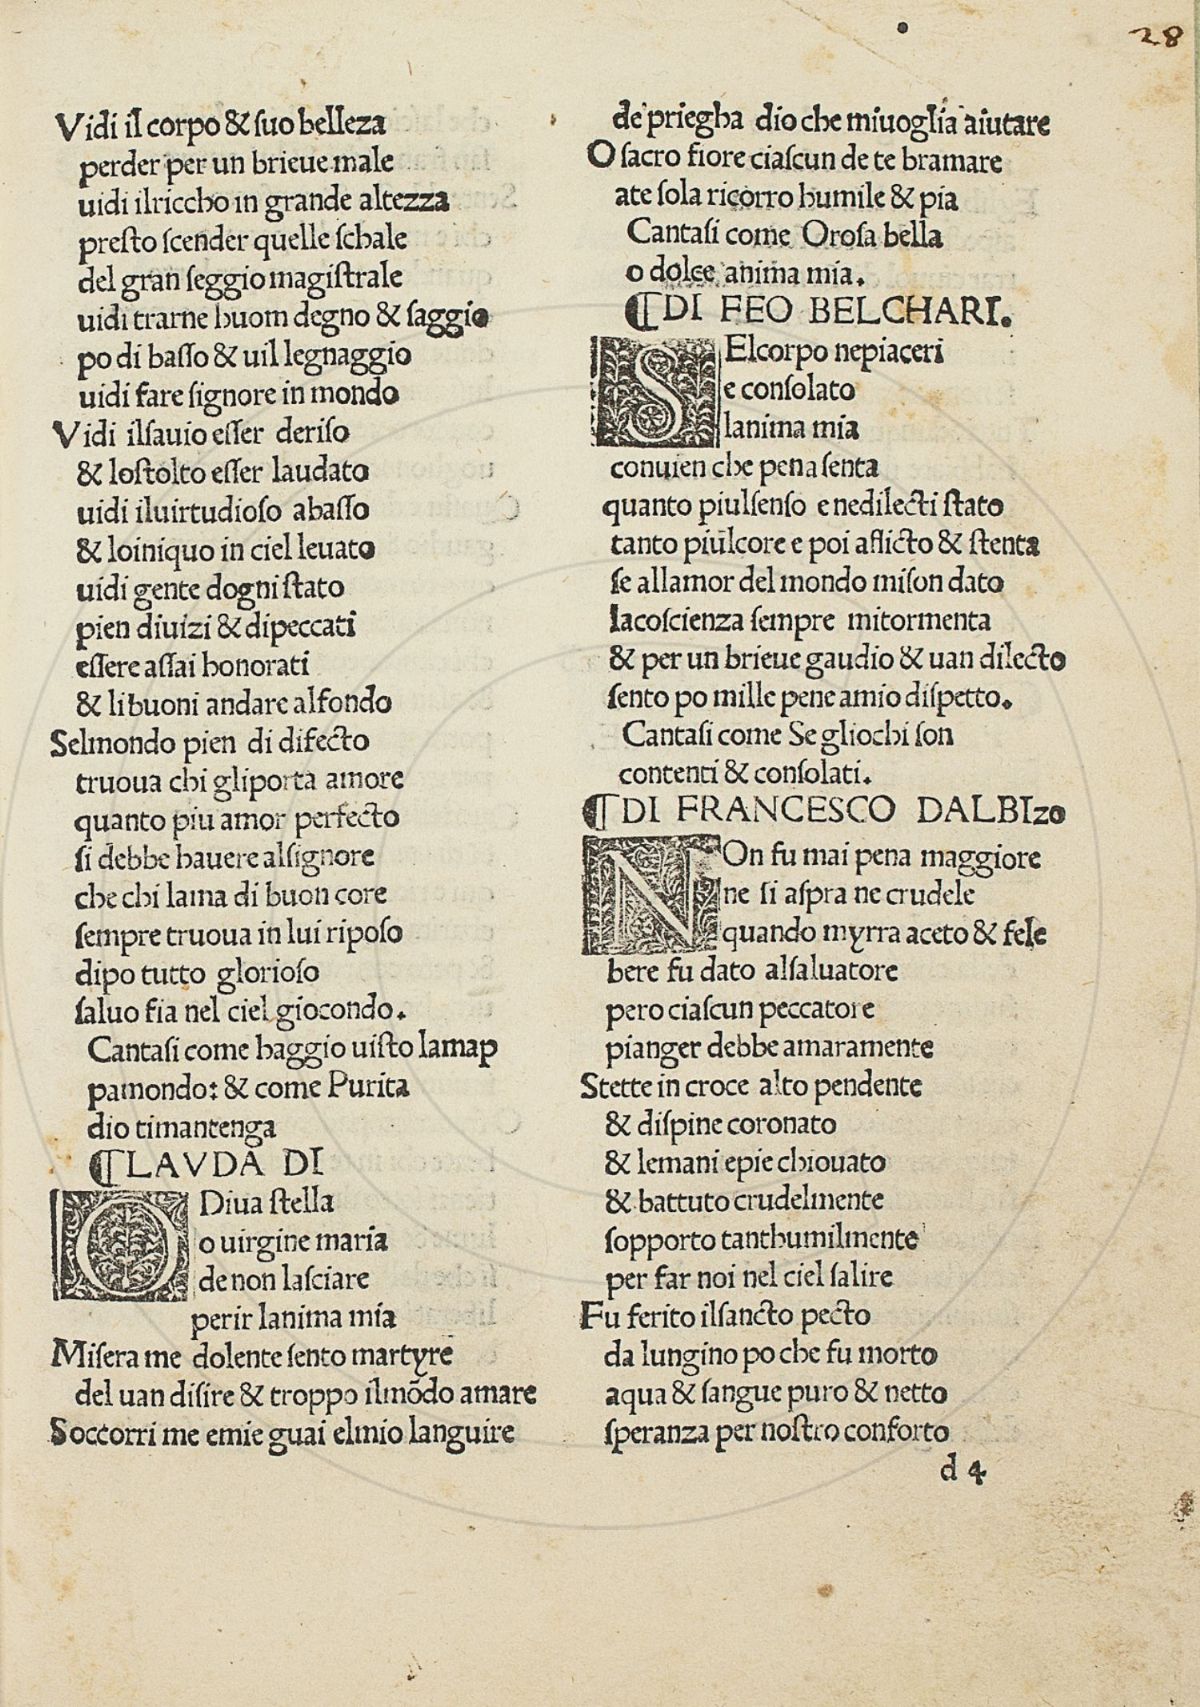 28
Vidi il corpo & ſuo belleza
perder per un brieue male
uidi ilriccho in grande altezza
preſto ſcender quelle ſchale
del gran ſeggio magiſtrale
uidi trarne huom degno & ſaggio
po di baſſo & uil legnaggio
uidi fare ſignore in mondo
Vidi ilſauio eſſer deriſo
& loſtolto eſſer laudato
uidi iluirtudioſo abaſſo
& loiniquo in ciel leuato
uidi gente dogni ſtato
pien diuizi & dipeccati
eſſere aſſai honorati
& libuoni andare alfondo
Selmondo pien di difecto
truoua chi gliporta amore
quanto piu amor perfecto
ſi debbe hauere alſignore
che chi lama di buon core
ſempre truoua in lui ripoſo
dipo tutto glorioſo
ſaluo fia nel ciel giocondo.
Cantaſi come haggio uiſto lamap
pamondo: & come Purita
dio timantenga
¶LAVDA DI
O Diua ſtella
o uirgine maria
de non laſciare
perir lanima mia
Miſera me dolente ſento martyre
del uan diſire & troppo ilmōdo amare
Soccorri me emie guai elmio languire
de priegha dio che miuoglia aiutare
O ſacro fiore ciaſcun de te bramare
ate ſola ricorro humile & pia
Cantaſi come Oroſa bella
o dolce anima mia.
¶DI FEO BELCHARI.
SElcorpo nepiaceri
e conſolato
lanima mia
conuien che pena ſenta
quanto piulſenſo e nedilecti ſtato
tanto piulcore e poi aflicto & ſtenta
ſe allamor del mondo miſon dato
lacoſcienza ſempre mitormenta
& per un brieue gaudio & uan dilecto
ſento po mille pene amio diſpetto.
Cantaſi come Se gliochi ſon
contenti & conſolati.
¶DI FRANCESCO DALBIzo
NOn fu mai pena maggiore
ne ſi aſpra ne crudele
quando myrra aceto & fele
bere fu dato alſaluatore
pero ciaſcun peccatore
pianger debbe amaramente
Stette in croce alto pendente
& diſpine coronato
& lemani epie chiouato
& battuto crudelmente
ſopporto tanthumilmente
per far noi nel ciel ſalire
Fu ferito ilſancto pecto
da lungino po che fu morto
aqua & ſangue puro & netto
ſperanza per noſtro conforto
d 4